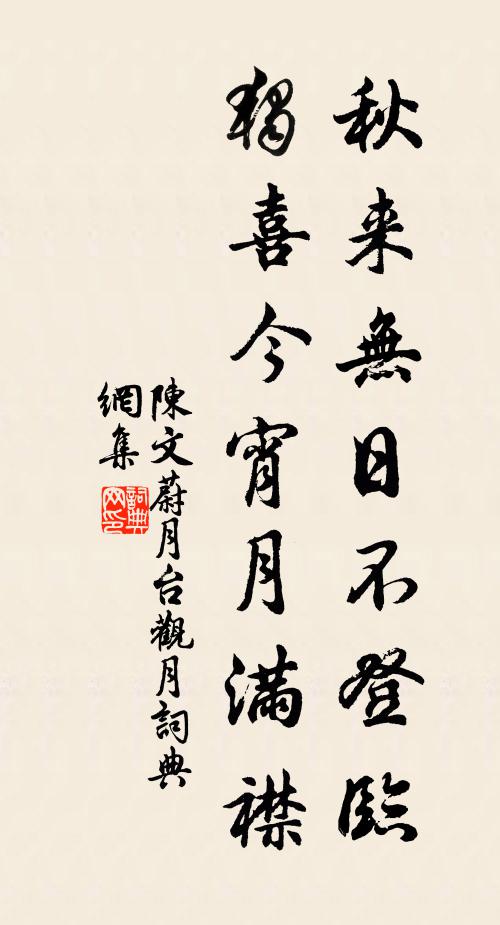 秋来無日不登臨
獨喜今宵月滿襟
陳文蔚月台觀月詞典
網集
詞典网印